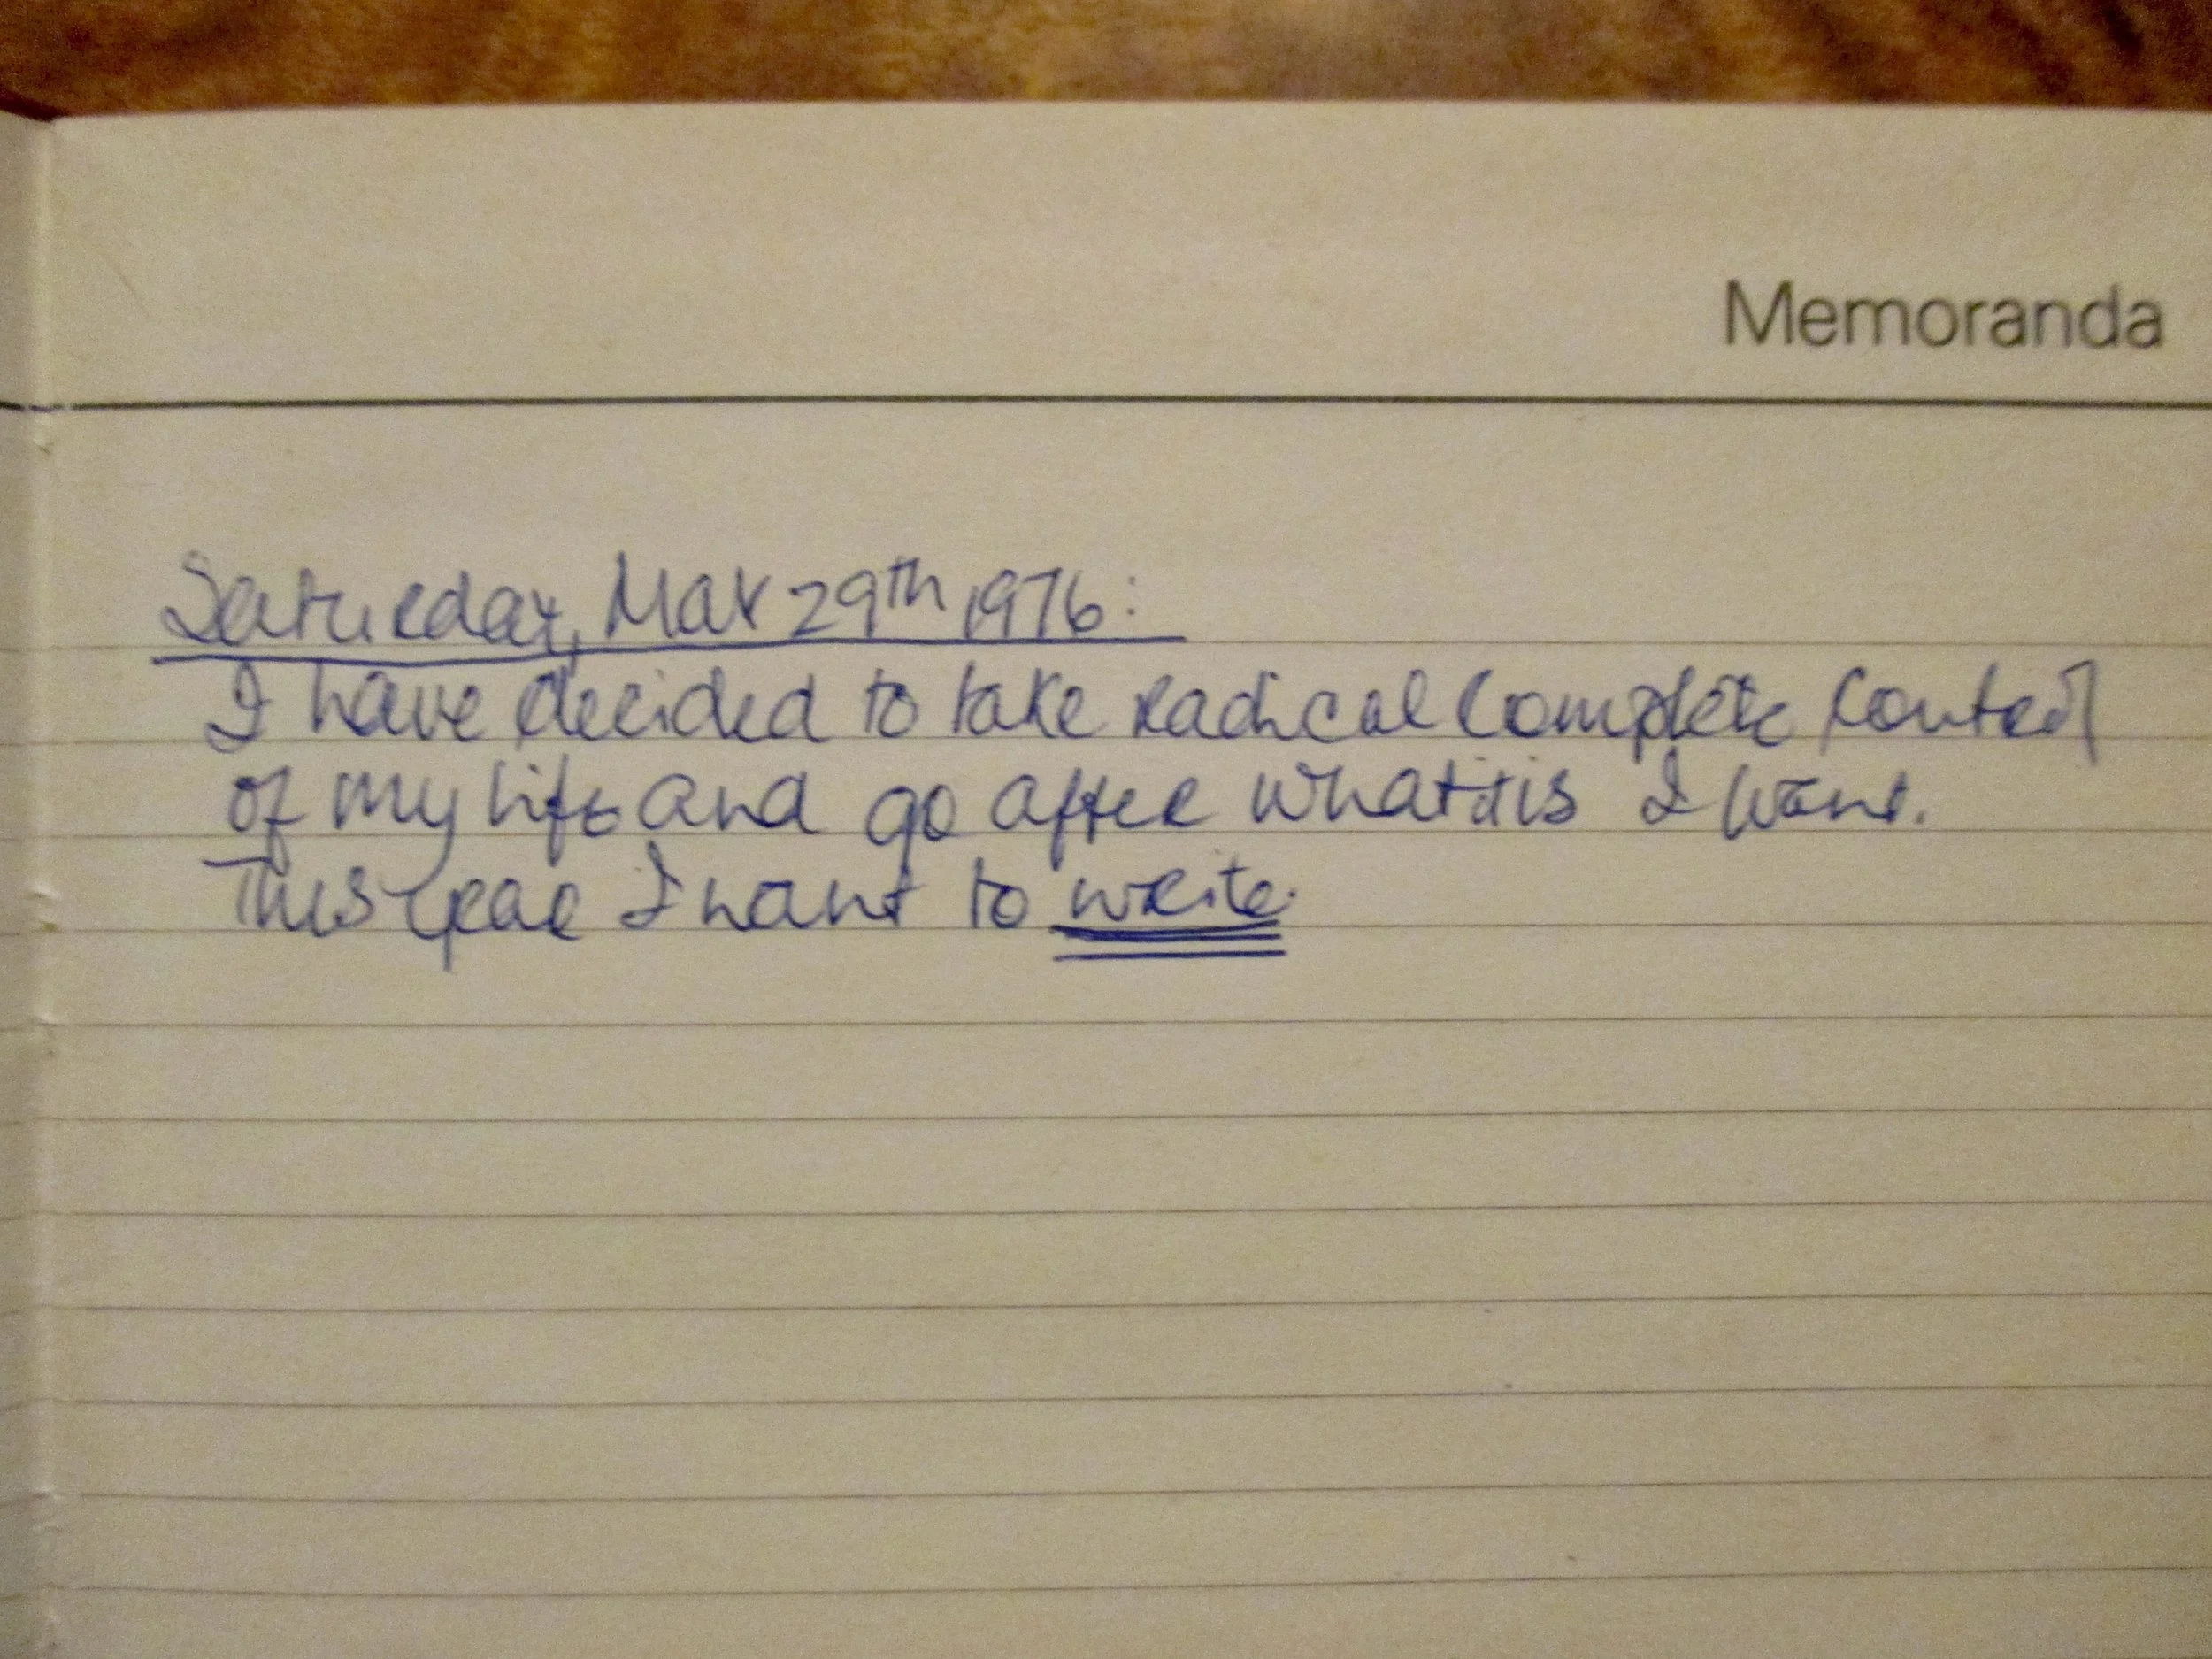 Memoranda
Saturday, May 29th 1976:
I have decided to take radical complete control
of my life and go after what it is I want.
This year I want to write.